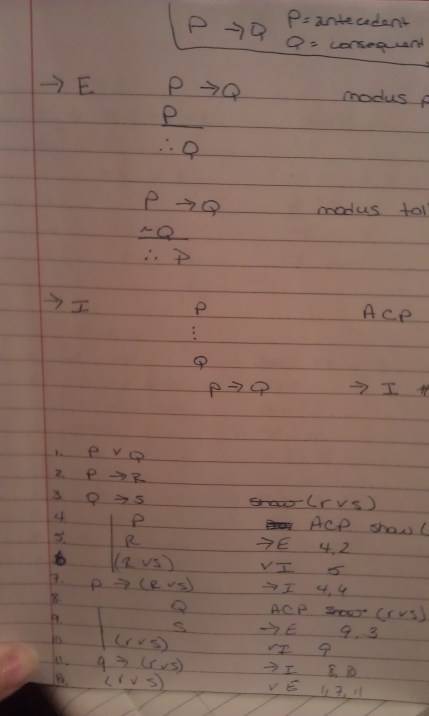 P → Q P = antecedent
Q = consequent
→ E P → Q modus
P
∴ Q
P → Q modus tol
~Q
∴ P
→ I P ACP
⋮
Q
P → Q → I
1. P v Q
2. P → R
3. Q → S show (r v s)
4 P ACP show (
5. R → E 4,2
6 (R v S) v I 5
7 P → (R v S) → I 4,4
8. Q ACP show (r v s)
9 S → E 9,3
10. (r v s) v I 9
11. q → (r v s) → I 8,
(r v s) v E 1,7,11